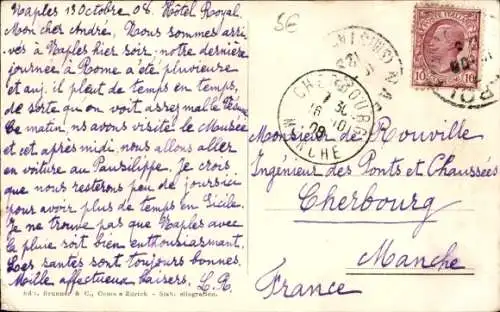 Naples 13 Octobre 08. Hôtel Royal.
Mon cher André, Nous sommes arri-
vés à Naples hier soir, notre dernière
journée à Rome a été pluvieuse
et auj. il pleut de temps en temps,
de sorte qu'on voit assez mal le Vésuve
Ce matin, ns avons visité le Musée
et cet après midi, nous allons aller
en voiture au Pausilippe. Je crois
que nous resterons peu de jours ici
pour avoir plus de temps en Sicile.
Je ne trouve pas que Naples avec
la pluie soit bien enthousiasmant.
Les santés sont toujours bonnes.
Mille affectueux baisers. L.R.
Edit. Brunner & C., Como e Zürich. - Stab. eliografico.
5E
CHERBOURG
MANCHE
10 10
Monsieur de Rouville
Ingénieur des Ponts et Chaussées
Cherbourg
Manche
France